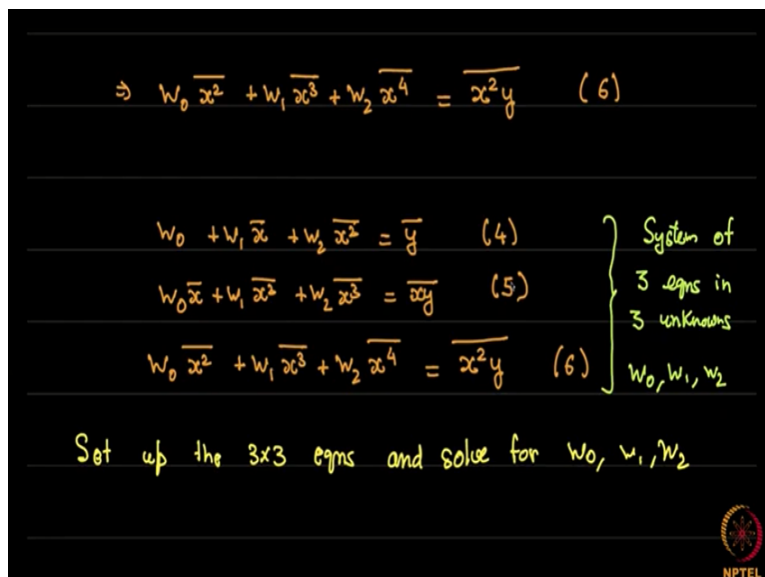 ⇒ W₀ x̄² + W₁ x̄³ + W₂ x̄⁴ = \overline{x²y} (6)
W₀ + W₁ x̄ + W₂ \overline{x²} = ȳ (4)
W₀ x̄ + W₁ \overline{x²} + W₂ \overline{x³} = \overline{xy} (5)
W₀ \overline{x²} + W₁ \overline{x³} + W₂ \overline{x⁴} = \overline{x²y} (6)
System of
3 eqns in
3 unknowns
W₀, W₁, W₂
Set up the 3x3 eqns and solve for W₀, W₁, W₂
NPTEL